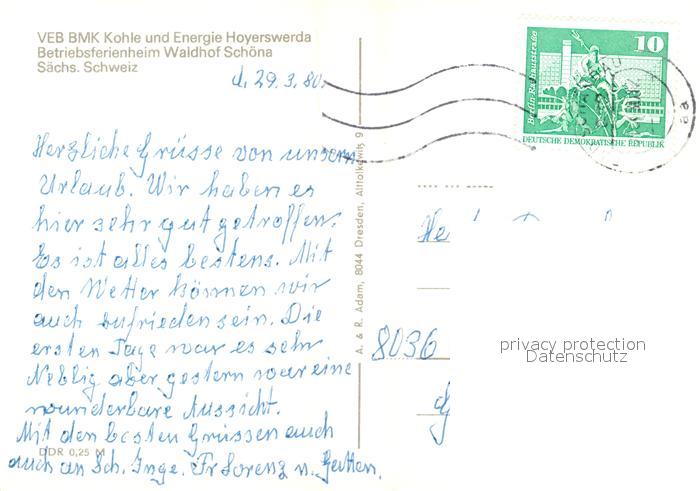 VEB BMK Kohle und Energie Hoyerswerda
Betriebsferienheim Waldhof Schöna
Sächs. Schweiz
d. 29.3.80.
Herzliche Grüsse von unserm
Urlaub. Wir haben es
hier sehr gut getroffen.
Es ist alles bestens. Mit
dem Wetter können wir
auch zufrieden sein. Die
ersten Tage war es sehr
Neblig aber gestern war eine
wunderbare Aussicht.
Mit den besten Grüssen auch
auch an Sch. Inge. Fr Lorenz n. Gatten.
DDR 0,25 M
A. & R. Adam, 8044 Dresden, Alttolkewitz 9
Berlin-Rathausstraße
10
DEUTSCHE DEMOKRATISCHE REPUBLIK
He
8036
privacy protection
Datenschutz